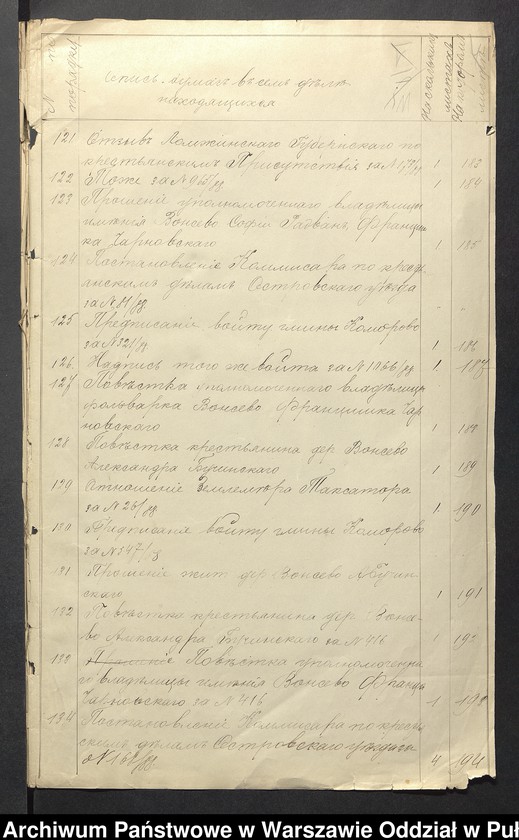 N по порядку
Опись бумагъ въ семъ дѣлѣ находящихся
На сколькихъ листахъ
На котором
121 Отзывъ Ломжинскаго Губернскаго по
крестьянскимъ Присутствія за N 1 183
122 Тоже за N 963/88 1 184
123 Прошеніе уполномоченнаго владѣлицы
имѣнія Вонсево Софіи Францишка
Чарновскаго 1 185
124 Постановленіе Коммисара по крестьянскимъ дѣламъ Островскаго уѣзда
за N 81/88
125 Предписаніе войту гмины Коморово
за N 321/88 1 186
126 Надпись того же войта за N 1966/88 1 187
127 Повѣстка уполномоченнаго владѣлицы
фольварка Вонсево Францишка Чар
новскаго 1 188
128 Повѣстка крестьянина дер Вонсево
Александра Бучинскаго 1 189
129 Отношеніе Землемѣра Таксатора
за N 26/88 1 190
130 Предписаніе войту гмины Коморово
за N 347/
131 Прошеніе жит дер Вонсево А Бучин
скаго 1 191
132 Повѣстка крестьянина дер. Вонсе-
во Александра Бучинскаго за N 416 1 192
133 Повѣстка уполномоченна
го владѣлицы имѣнія Вонсево Франца
Чарновскаго за N 416 1 193
134 Постановленіе Коммисара по кресть
скимъ дѣламъ Островскаго уѣзда
N 162/88 4 194
Archiwum Państwowe w Warszawie Oddział w Puł